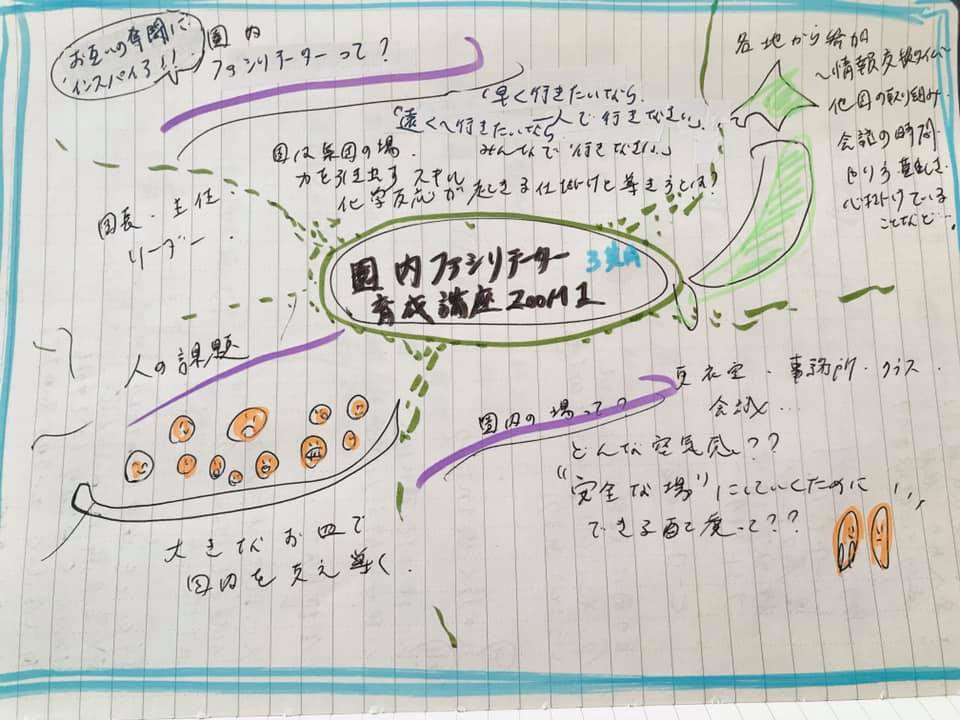 お互いの奮闘に
インスパイア!!
園内
ファシリテーターって?
「早く行きたいなら、
一人で行きなさい。
「遠くへ行きたいなら
みんなで行きなさい。」
園は集団の場。
力を引き出すスキル
化学反応が起きる仕掛けと導き方とは?
園長・主任・
リーダー・
各地から参加
〜情報交換タイム〜
他園の取り組み
会議の時間
やり方
心掛けている
ことなど…
園内ファシリテーター
育成講座ZOOM1
3
人の課題
大きなお皿で
園内を支え導く。
園内の場って?
更衣室・事務所・クラス・
会議…
どんな空気感??
"安全な場"にしていくために
できる配慮って??